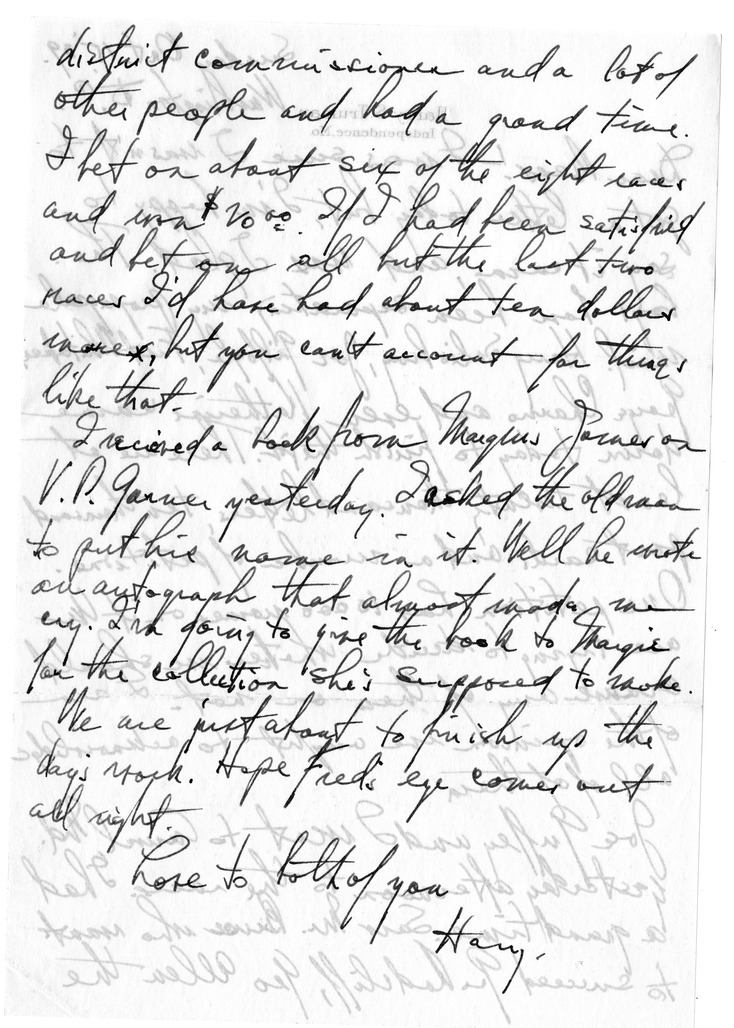 district commissioner and a lot of
other people and had a grand time.
I bet on about six of the eight races
and won $20.00. If I had been satisfied
and bet on all but the last two
races I'd have had about ten dollars
more, but you can't account for things
like that.
I received a book from Marquis James on
V.P. Garner yesterday. I asked the old man
to put his name in it. Well he wrote
an autograph that almost made me
cry. I'm going to give the book to Margie
for the collection she's supposed to make.
We are just about to finish up the
day's work. Hope Fred's eye comes out
all right.
Love to both of you
Harry.